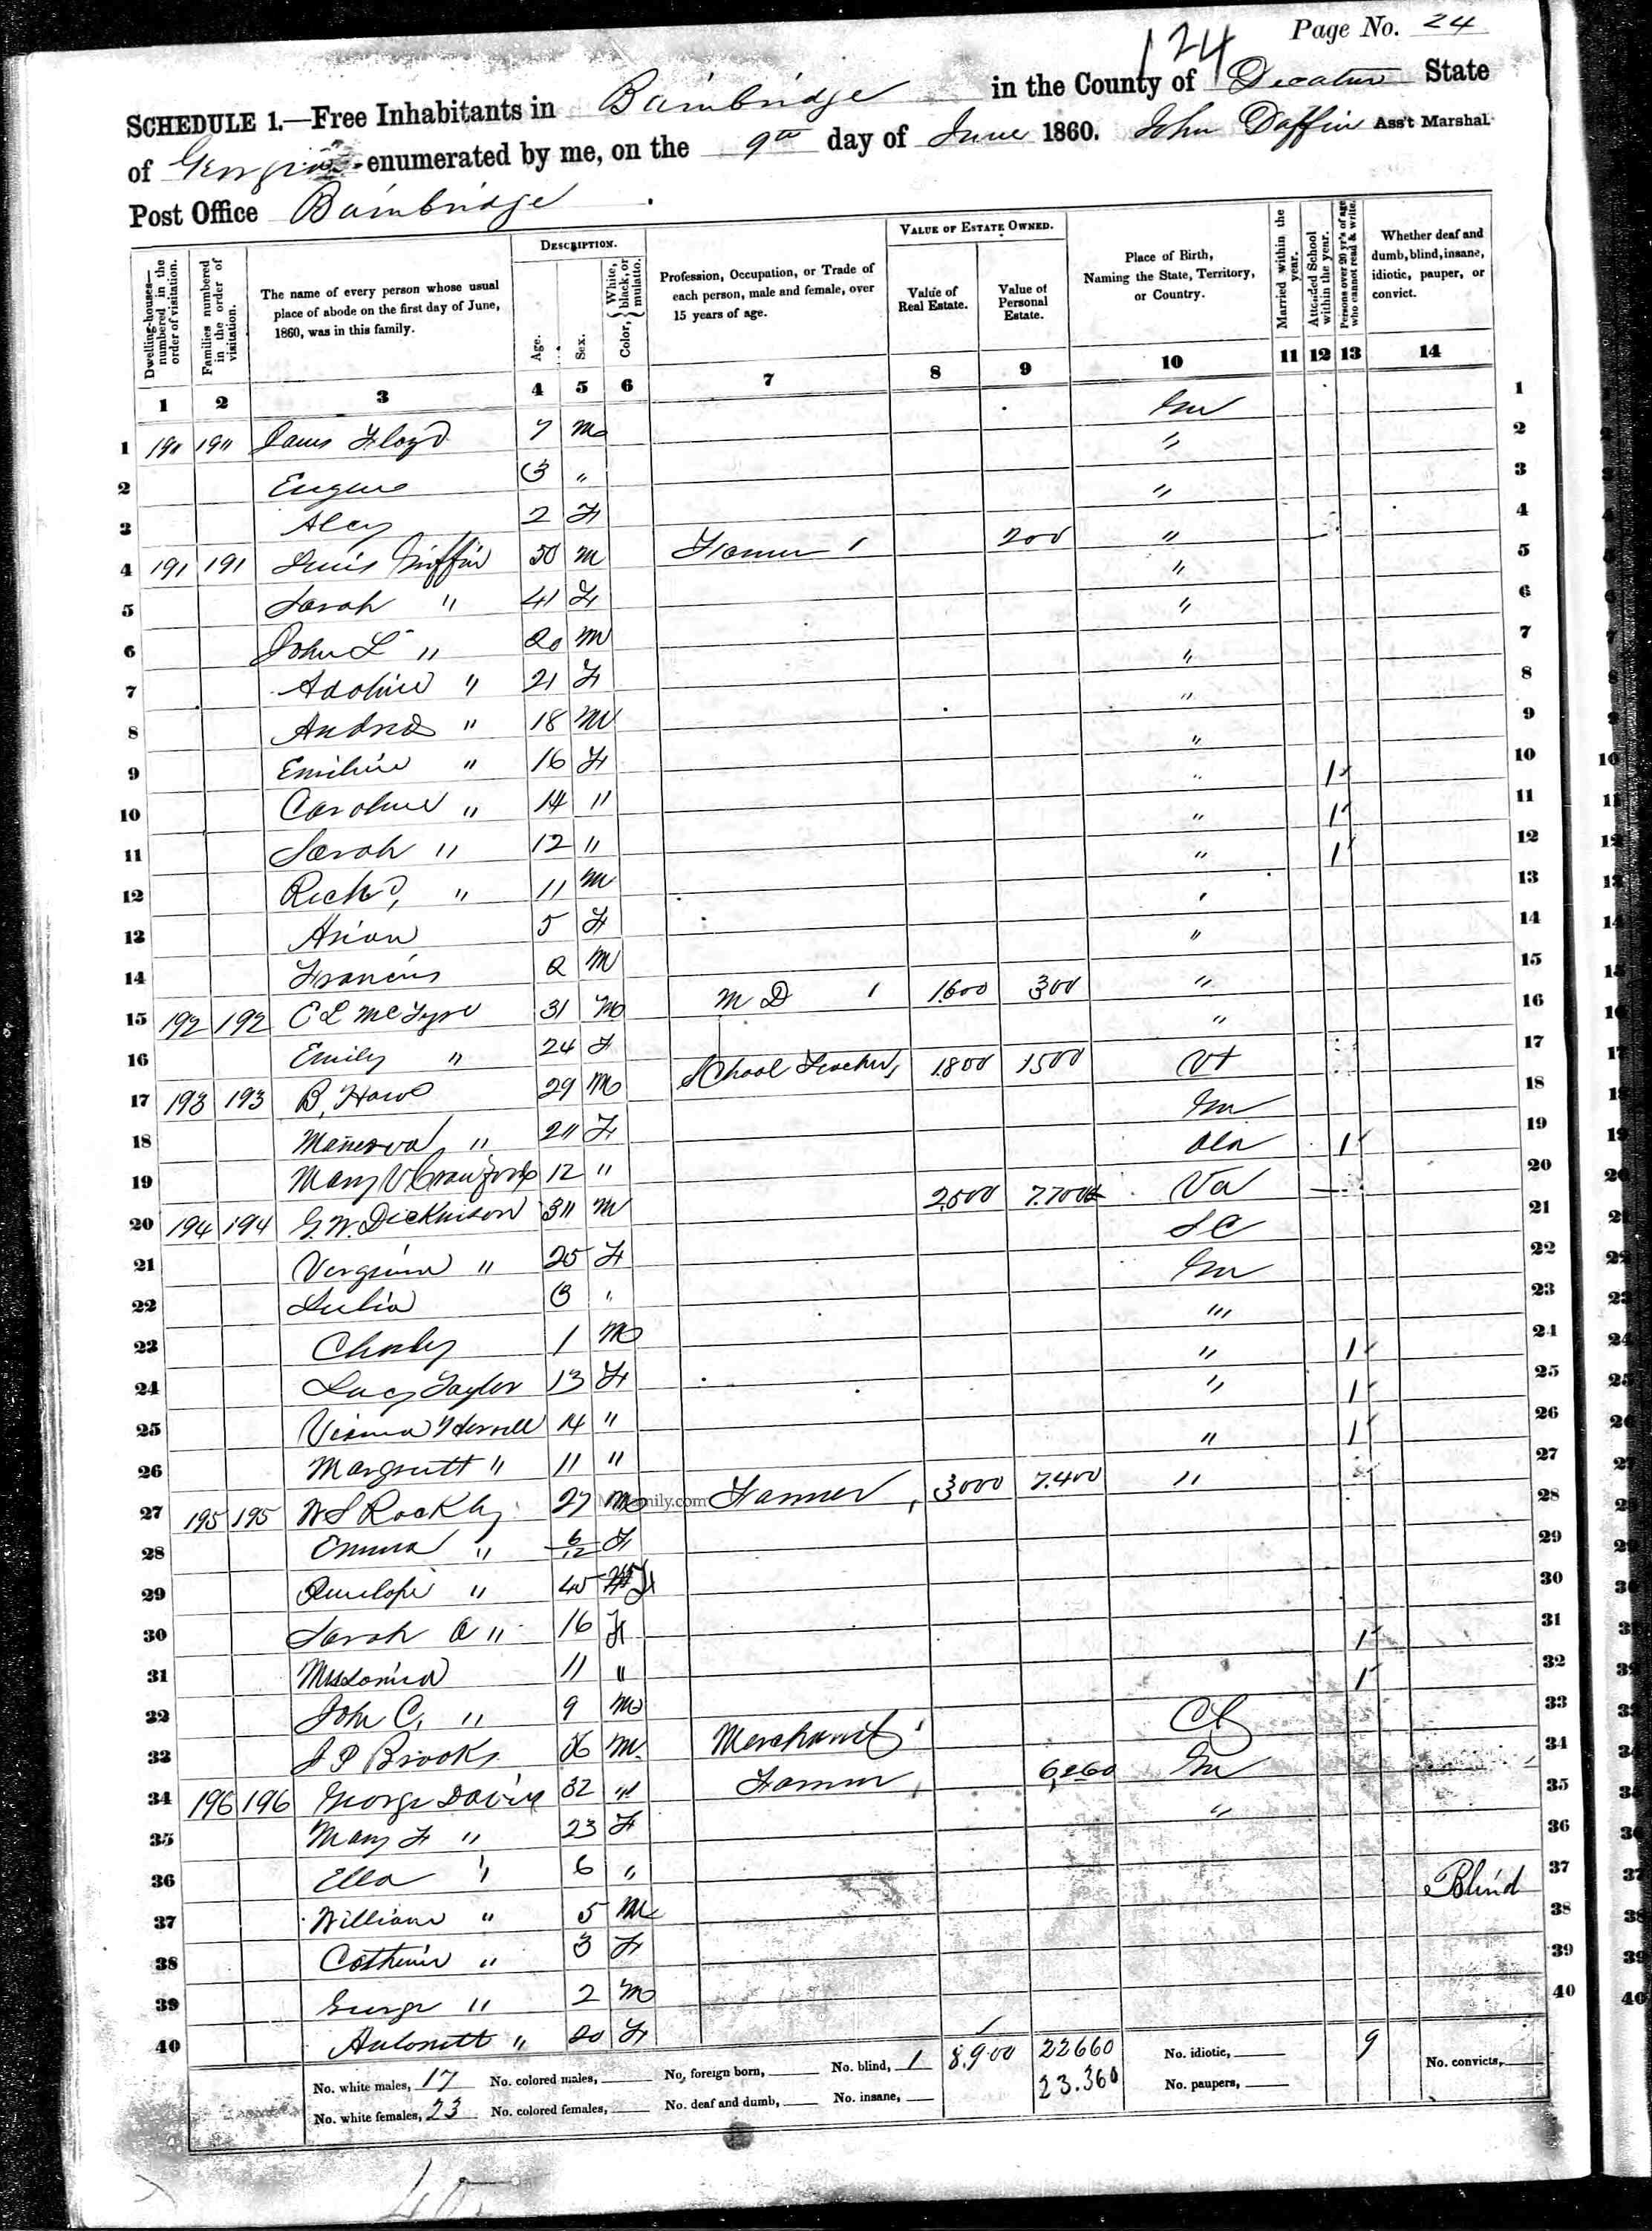 Page No. 24
124
SCHEDULE 1.—Free Inhabitants in Bainbridge in the County of Decatur State
of Georgia enumerated by me, on the 9th day of June 1860. John Daffin Ass't Marshal.
Post Office Bainbridge
Dwelling-houses—numbered in the order of visitation.
Families numbered in the order of visitation.
The name of every person whose usual place of abode on the first day of June, 1860, was in this family.
DESCRIPTION.
Age.
Sex.
Color, { White, black, or mulatto.
Profession, Occupation, or Trade of each person, male and female, over 15 years of age.
VALUE OF ESTATE OWNED.
Value of Real Estate.
Value of Personal Estate.
Place of Birth, Naming the State, Territory, or Country.
Married within the year.
Attended School within the year.
Persons over 20 yr's of age who cannot read & write.
Whether deaf and dumb, blind, insane, idiotic, pauper, or convict.
1 2 3 4 5 6 7 8 9 10 11 12 13 14
1 Floyd 7 M 1
2 Eugene 3 " " 2
3 2 F " 3
4 191 191 Griffin 50 M Farmer 200 " 4
5 Sarah " 41 F " 5
6 John L " 20 M " 6
7 Adoline " 21 F " 7
8 Andrew " 18 M " 8
9 Emiline " 16 F " 9
10 Caroline " 14 " " 1 10
11 Sarah " 12 " " 1 11
12 Richd, " 11 M " 1 12
13 5 F " 13
14 Francis 2 M " 14
15 192 192 C L McTyre 31 M M D 1600 300 " 15
16 Emily " 24 F " 16
17 193 193 B, Howe 29 M School Teacher 1800 1500 Vt 17
18 Manerva " F 18
19 Mary V Crawford 12 " Ala 1 19
20 194 194 G. W. Dickinson M 2500 Va 20
21 Verginia " 25 F S C 21
22 Julia 3 " 22
23 Charley 1 M " 23
24 Lucy Taylor 13 F " 1 24
25 14 " " 1 25
26 Margrett " 11 " " 1 26
27 195 195 W S 27 M Farmer 3000 7.400 " 27
28 Emma " 6/12 F 28
29 Penelope " 45 F 29
30 Sarah A " 16 F 30
31 11 " 1 31
32 John C, " 9 M 1 32
33 J P Brooks M Merchant 33
34 196 196 George Davis 32 " Farmer 34
35 Mary F " 23 F " 35
36 Ella " 6 " 36
37 William " 5 M Blind 37
38 Catherine " 3 F 38
39 George " 2 M 39
40 Antonett " 20 F 40
No. white males, 17 No. colored males, No. foreign born, No. blind, 1 8.900 22660 No. idiotic, 9 No. convicts,
No. white females, 23 No. colored females, No. deaf and dumb, No. insane, 23.360 No. paupers,
40